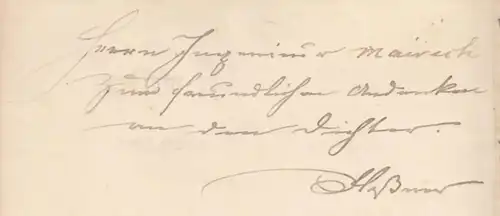 Herrn Ingenieur Mairich
zum freundlichen Andenken
an den Dichter.